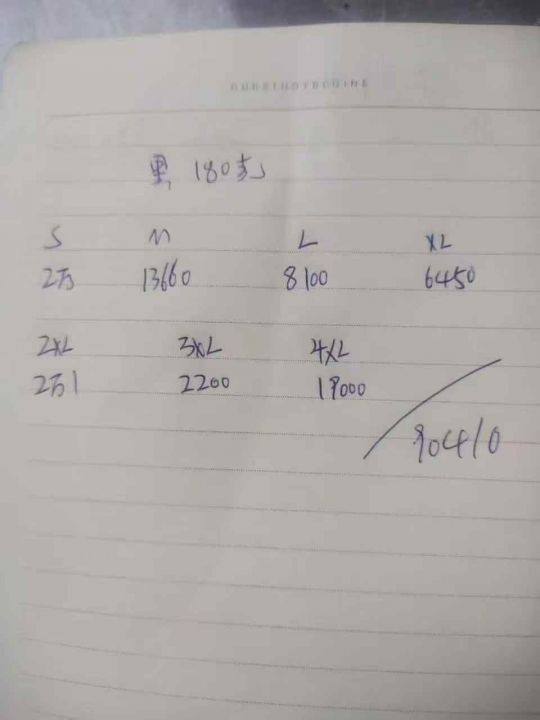 黑 180克
S M L XL
2万 13660 8100 6450
2XL 3XL 4XL
2万1 2200 19000
90410